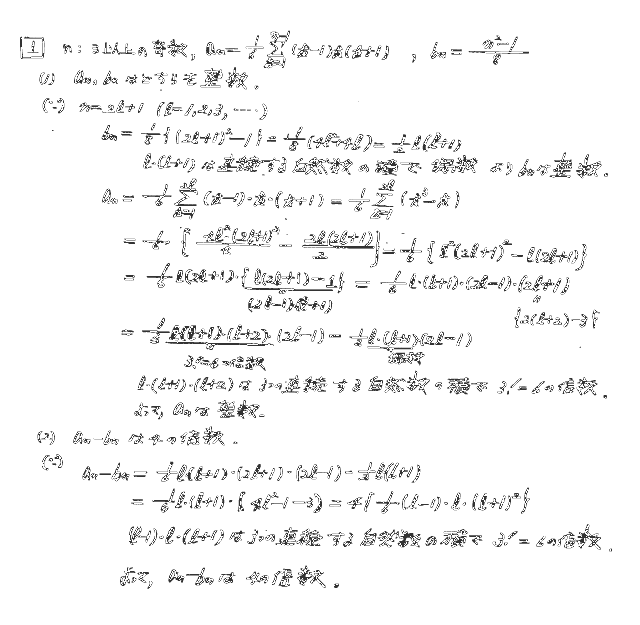 [1] n:3以上の奇数, aₙ= 1/6 Σ_{k=1}^{n-1} (k-1)k(k+1) , bₙ= (n²-1)/8
(1) aₙ, bₙ はどちらも整数.
(∵) n=2l+1 (l=1,2,3, ....)
bₙ= 1/8 {(2l+1)²-1} = 1/8 (4l²+4l) = 1/2 l(l+1)
l・(l+1) は連続する自然数の積で偶数 より bₙは整数.
aₙ= 1/6 Σ_{k=1}^{2l} (k-1)・k・(k+1) = 1/6 Σ_{k=1}^{2l} (k³-k)
= 1/6・{ 4l²(2l+1)²/4 - 2l(2l+1)/2 } = 1/6 {l²(2l+1)² - l(2l+1)}
= 1/6 l(2l+1)・{l(2l+1)-1} = 1/6 l・(l+1)・(2l-1)・(2l+1)
(2l-1)(l+1) {2(l+2)-3}
= 1/3 l(l+1)・(l+2)・(2l-1) - 1/2 l・(l+1)(2l-1)
3!=6の倍数 偶数
l・(l+1)・(l+2) は3つの連続する自然数の積で 3!=6の倍数.
よって, aₙは整数.
(2) aₙ-bₙ は4の倍数.
(∵) aₙ-bₙ = 1/6 l(l+1)・(2l+1)・(2l-1) - 1/2 l(l+1)
= 1/6 l・(l+1)・{4l²-1-3} = 4{ 1/6・(l-1)・l・(l+1)²}
(l-1)・l・(l+1) は3つの連続する自然数の積で 3!=6の倍数.
よって, aₙ-bₙ は4の倍数.